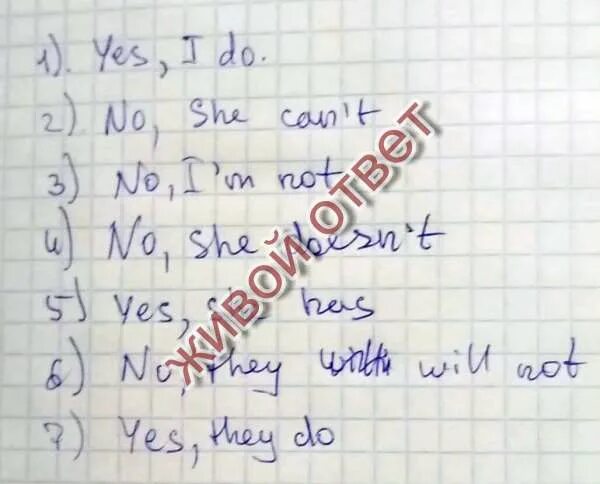 1). Yes, I do.
2) No, She can't
3) No, I'm not
4) No, she doesn't
5) Yes, has
6) No, they will not
7) Yes, they do
ЖИВОЙ ОТВЕТ